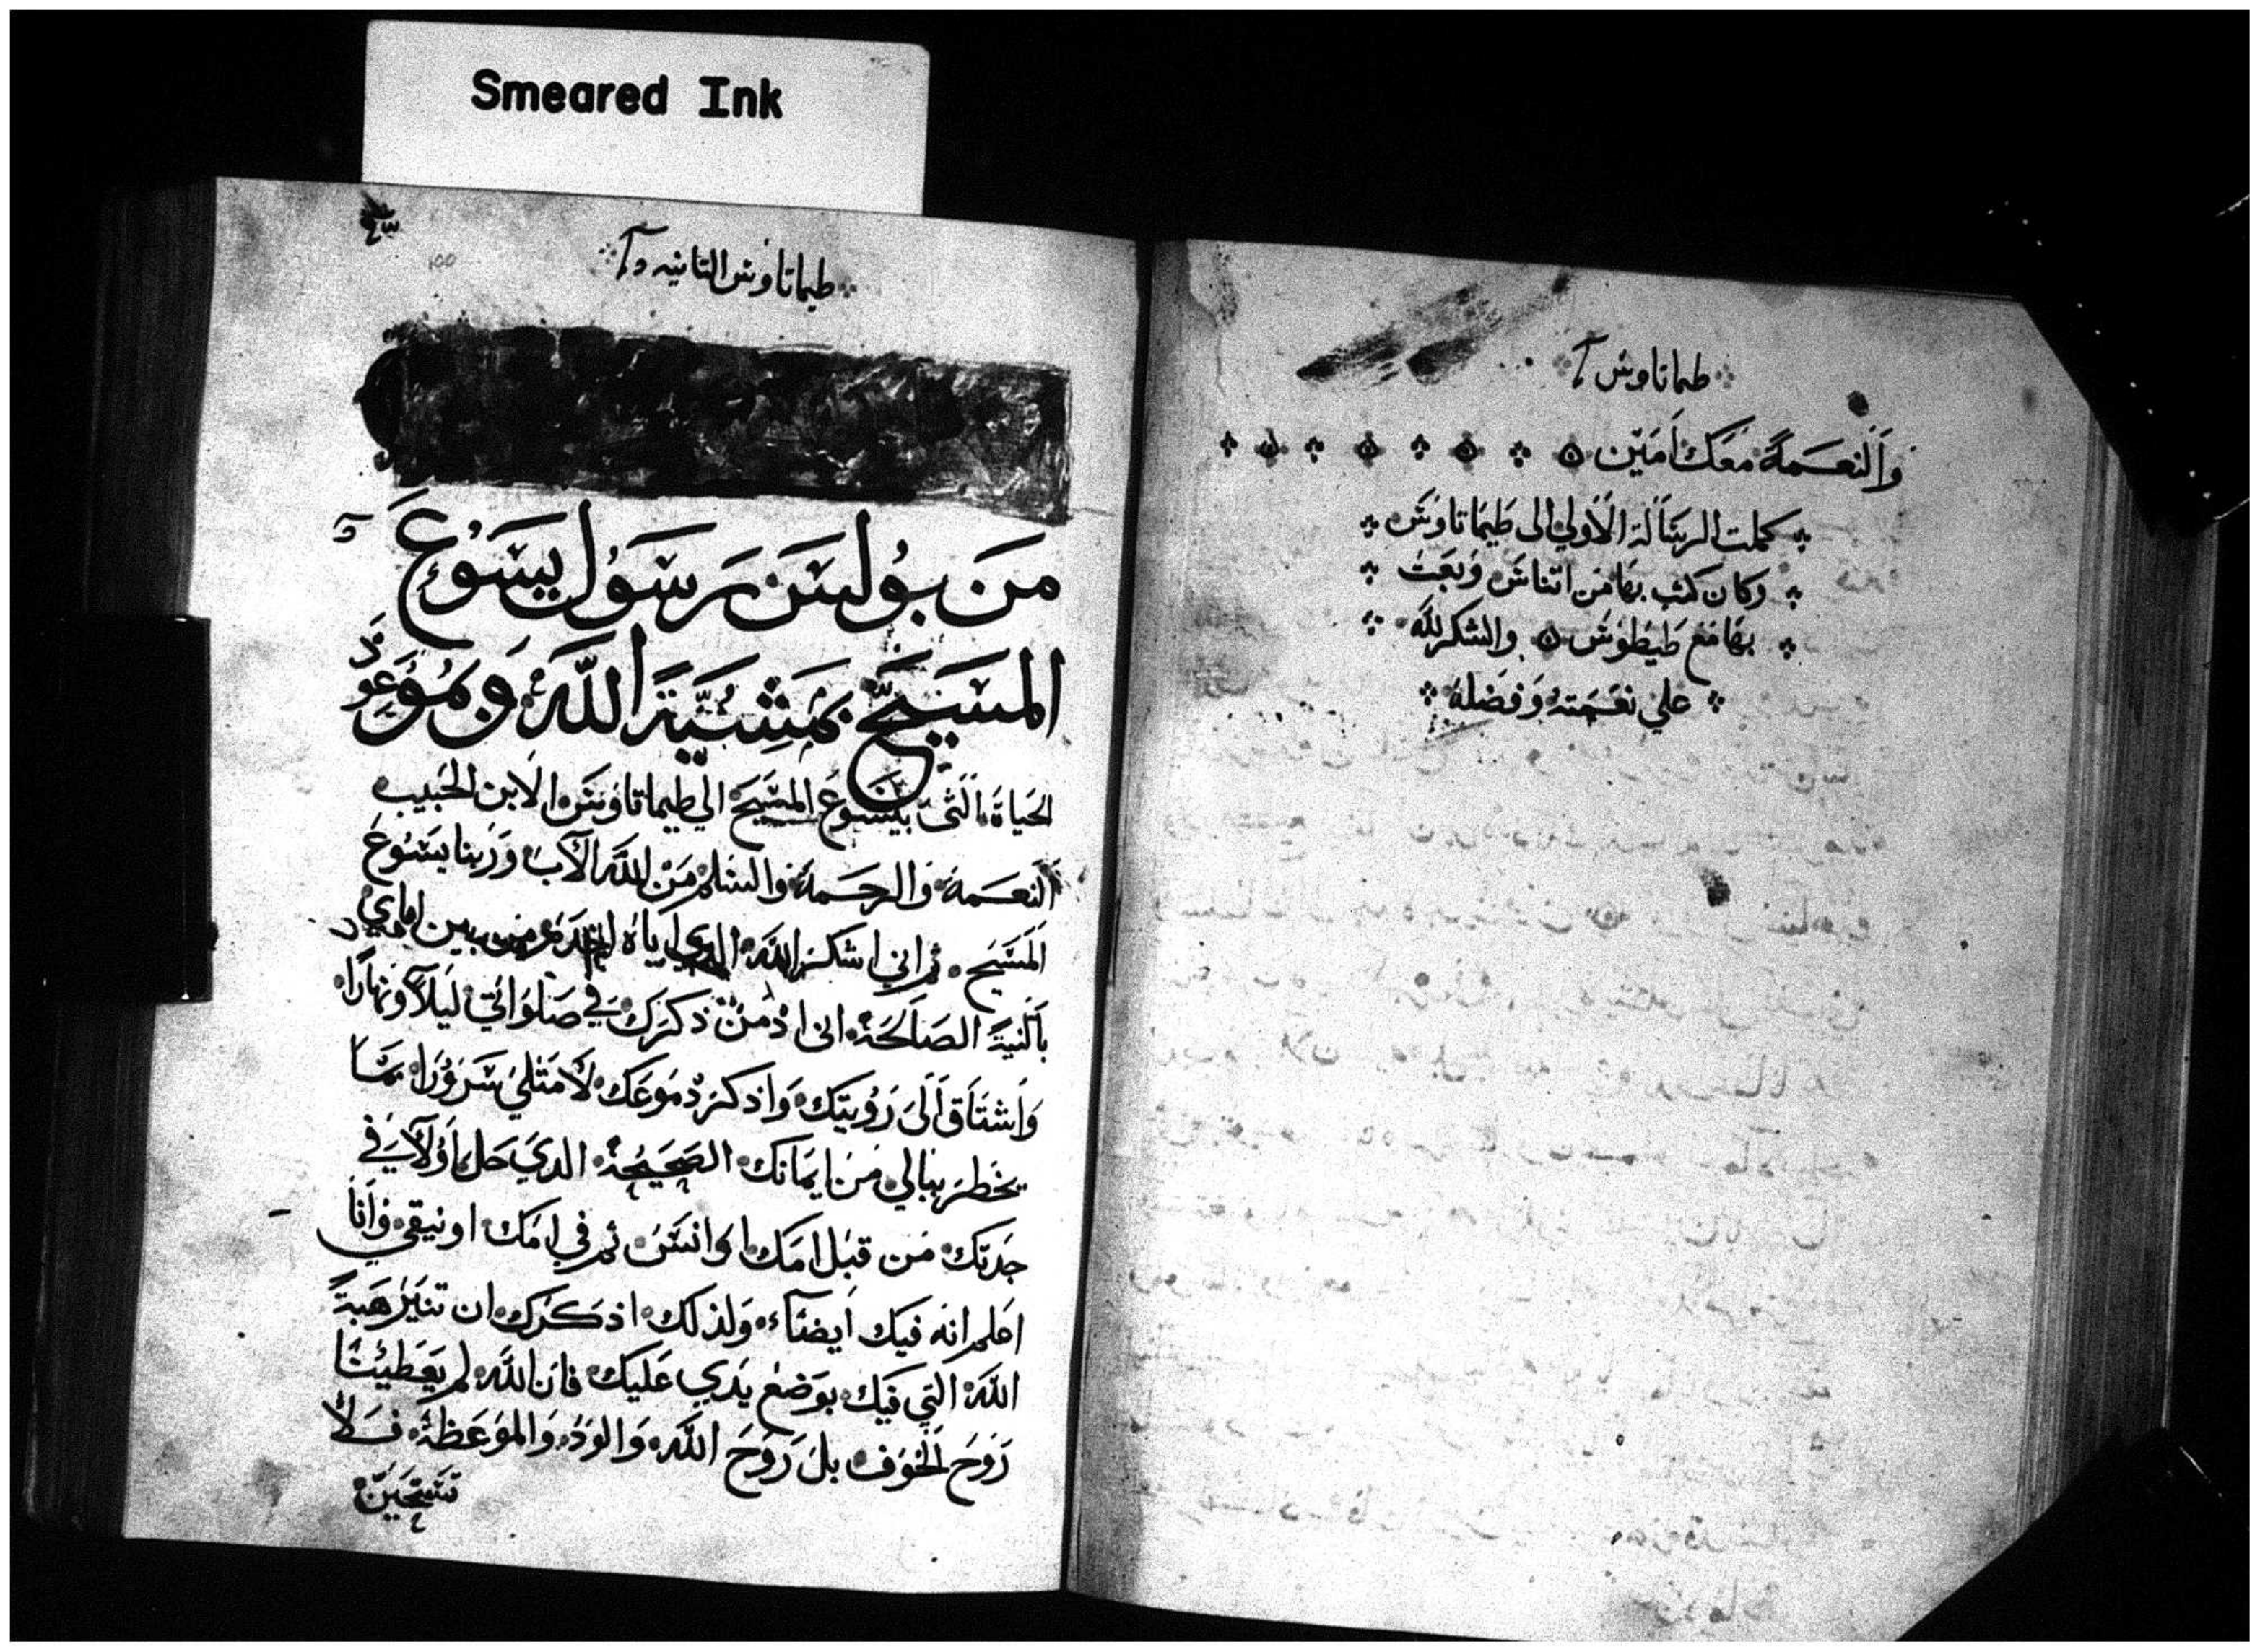 Smeared Ink
طيماتاوس
والنعمة معك امين
كملت الرسالة الاولي الى طيماتاوس
وكان كتب بها من اتناس وبعث
بها مع طيطوس والشكر لله
علي نعمته وفضله
طيماتاوس التانيه
100
من بولس رسول يسوع
المسيح بمشية الله وبموعود
الحياة التى بيسوع المسيح الي طيماتاوس الابن الحبيب
النعمة والرحمة والسلم من الله الآب وربنا يسوع
المسيح ثم اني اشكر الله الدي اياه اخدم من بين ابايي
بالنية الصالحة انى ادمن ذكرك في صلواتي ليلاً ونهارًا
واشتاق الى رويتك واذكر دموعك لامتلي سرورا بما
يخطر ببالي من ايمانك الصحيحة الدي حل اولآ في
جدتك من قبل امك لوانس ثم في امك اونيقي وانا
اعلم انه فيك ايضآء ولذلك اذكرك ان تنير هبة
الله التي فيك بوضع يدي عليك فان الله لم يعطينا
روح الخوف بل روح الله والود والموعظة فلا
تستحين